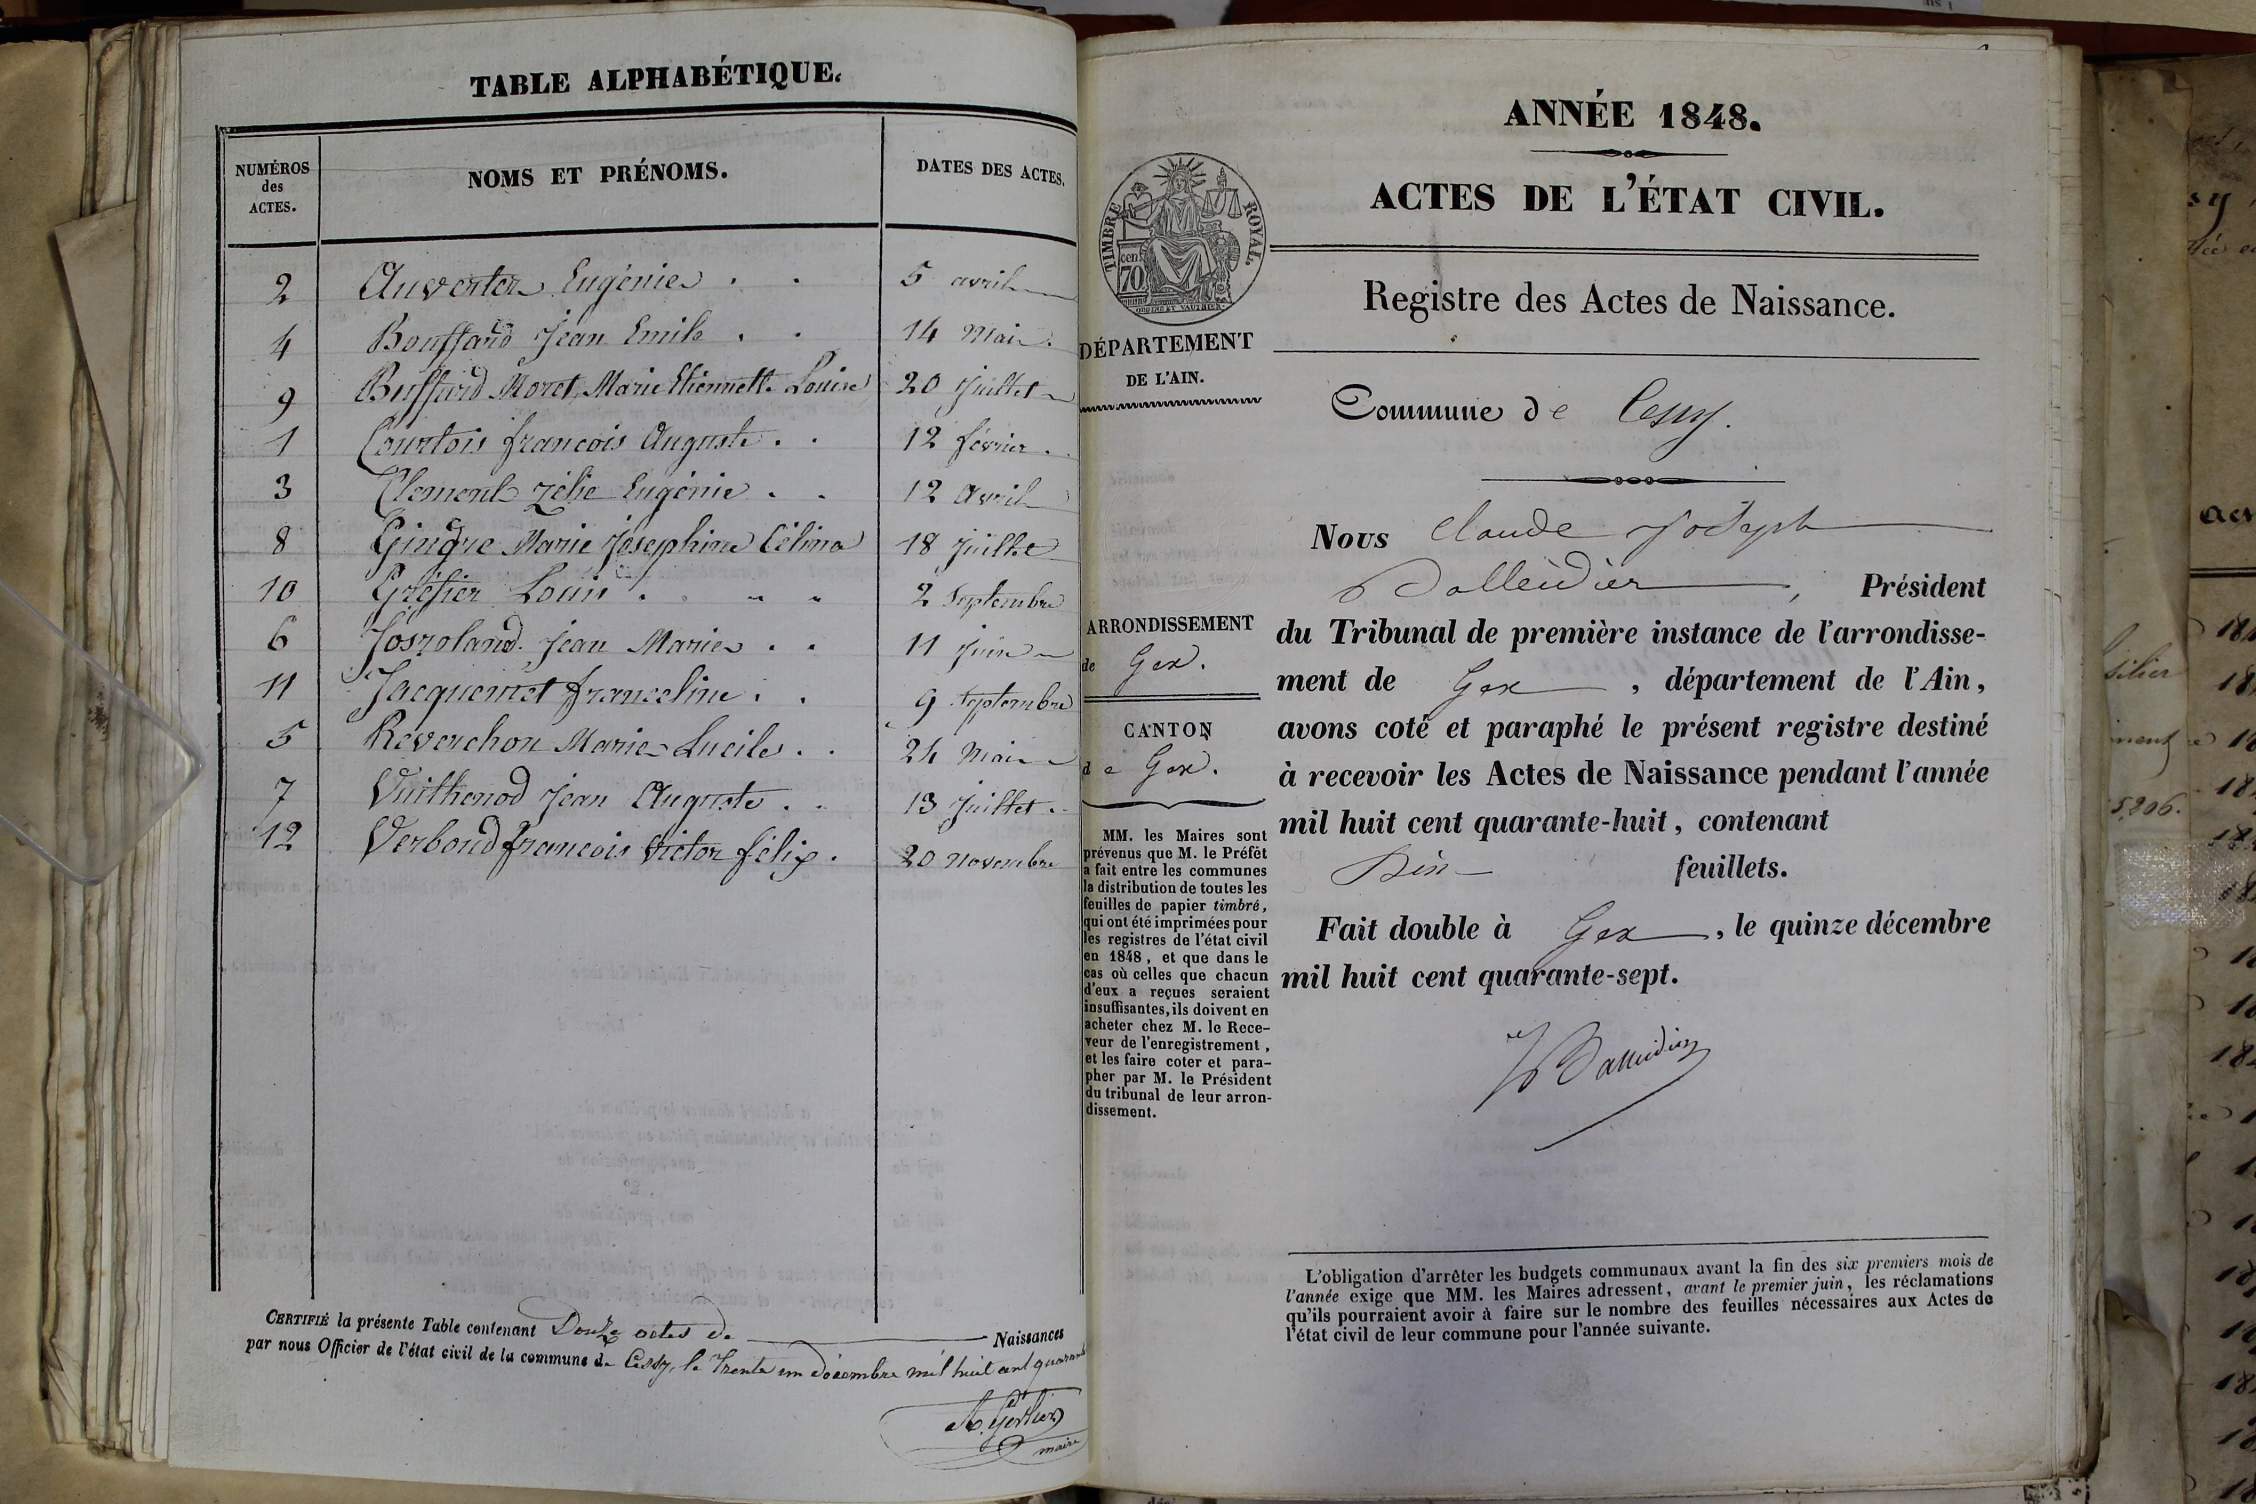 TABLE ALPHABÉTIQUE.
NUMÉROS des ACTES. NOMS ET PRÉNOMS. DATES DES ACTES.
2 Auverter Eugénie . . 5 avril
4 Bouffard Jean Emile . . 14 Mai
9 Buffard Moret, Marie Etiennette Louise 20 Juillet
1 Courtois francois Auguste . . 12 février .
3 Clement Zélie Eugénie . . 12 Avril
8 Gindre Marie Joséphine Célina 18 Juillet
10 Gréfier Louis . . 2 Septembre
6 Josroland Jean Marie . . 11 Juin
11 Jacquemet franceline . . 9 Septembre
5 Reverchon Marie Lucile . . 24 Mai
7 Vuithenod Jean Auguste . . 13 Juillet .
12 Verboud francois Victor félix . 20 novembre
CERTIFIÉ la présente Table contenant Douze actes de Naissances
par nous Officier de l'état civil de la commune de Cessy, le Trente un décembre mil huit cent quarante
maire
ANNÉE 1848.
ACTES DE L'ÉTAT CIVIL.
TIMBRE ROYAL.
cen. 70
Registre des Actes de Naissance.
DÉPARTEMENT
DE L'AIN.
Commune de Cessy.
ARRONDISSEMENT
de Gex.
CANTON
de Gex.
MM. les Maires sont
prévenus que M. le Préfêt
a fait entre les communes
la distribution de toutes les
feuilles de papier timbré,
qui ont été imprimées pour
les registres de l'état civil
en 1848, et que dans le
cas où celles que chacun
d'eux a reçues seraient
insuffisantes, ils doivent en
acheter chez M. le Rece-
veur de l'enregistrement,
et les faire coter et para-
pher par M. le Président
du tribunal de leur arron-
dissement.
Nous Claude Joseph
Balleidier, Président
du Tribunal de première instance de l'arrondisse-
ment de Gex, département de l'Ain,
avons coté et paraphé le présent registre destiné
à recevoir les Actes de Naissance pendant l'année
mil huit cent quarante-huit, contenant
feuillets.
Fait double à Gex, le quinze décembre
mil huit cent quarante-sept.
Balleidier
L'obligation d'arrêter les budgets communaux avant la fin des six premiers mois de
l'année exige que MM. les Maires adressent, avant le premier juin, les réclamations
qu'ils pourraient avoir à faire sur le nombre des feuilles nécessaires aux Actes de
l'état civil de leur commune pour l'année suivante.